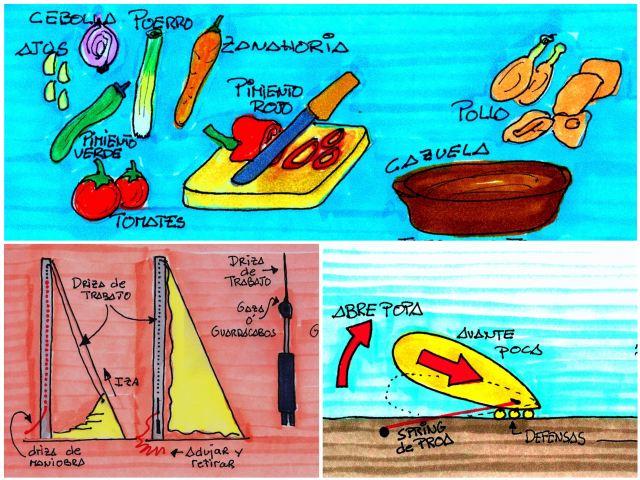 CEBOLLA
PUERRO
AJOS
ZANAHORIA
PIMIENTO
ROJO
PIMIENTO
VERDE
TOMATES
POLLO
CAZUELA
DRIZA de
TRABAJO
IZA
driza de
MANIOBRA
Adujar y
retirar
DRIZA
de
TRABAJO
GAZA
ó
GUARDACABOS
G
ABRE POPA
AVANTE
POCA
SPRING
de PROA
DEFENSAS